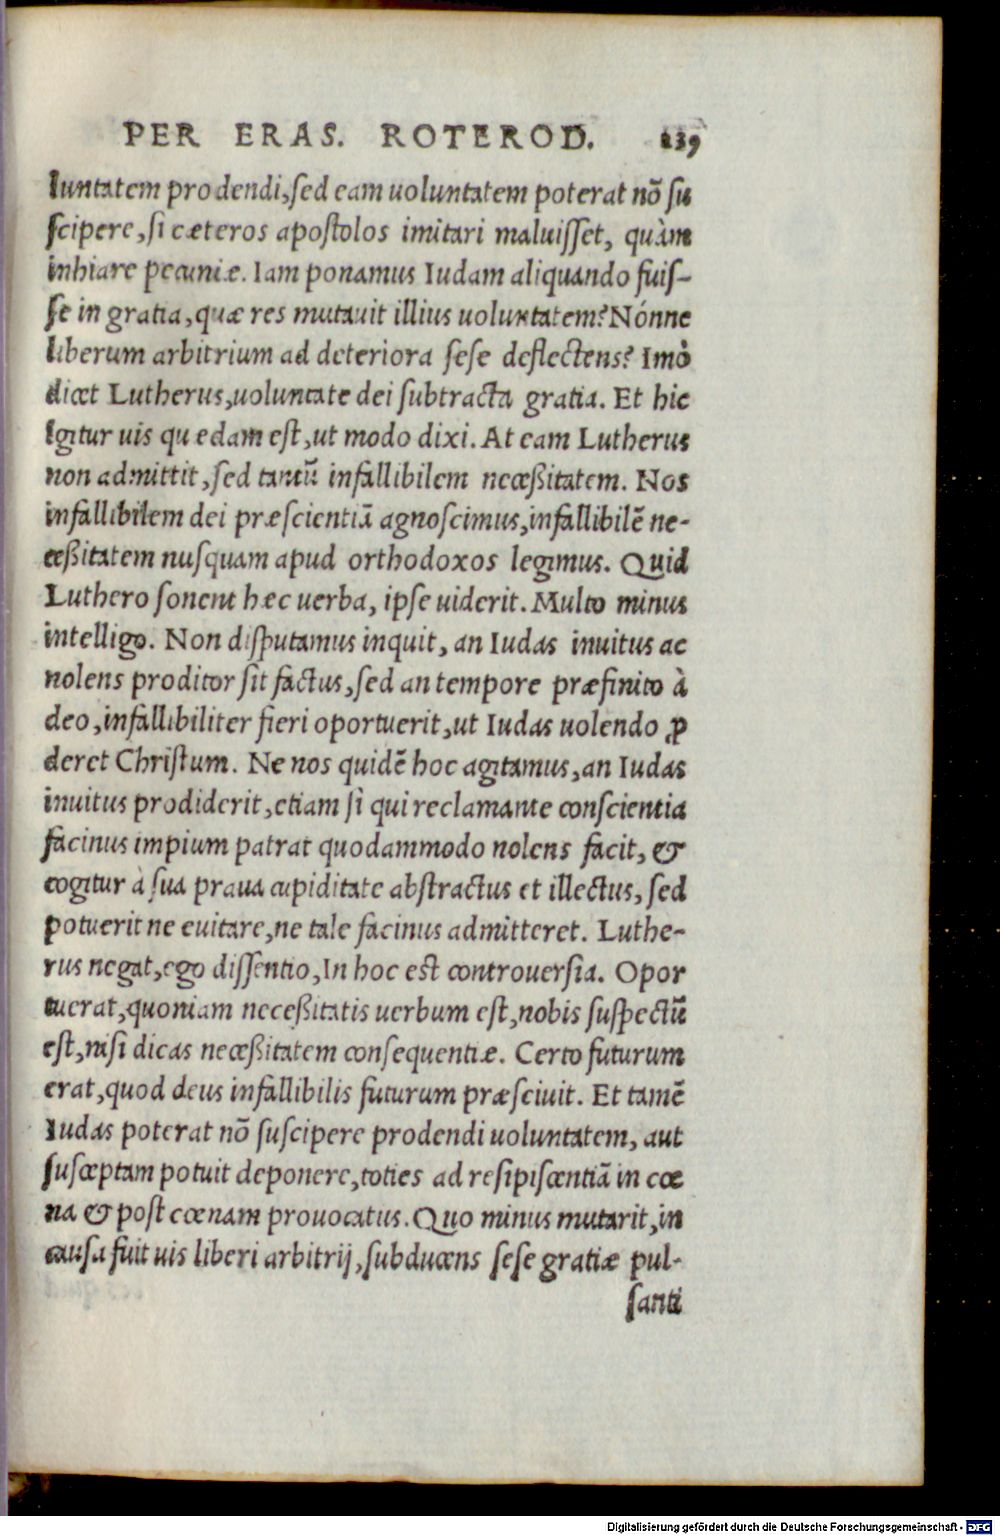 PER ERAS. ROTEROD. 239
luntatem prodendi, sed eam uoluntatem poterat nõ su
scipere, si cæteros apostolos imitari maluisset, quàm
inhiare pecuniæ. Iam ponamus Iudam aliquando fuis-
se in gratia, quæ res mutauit illius uoluntatem? Nónne
liberum arbitrium ad deteriora sese deflectens? Imò
dicet Lutherus, uoluntate dei subtracta gratia. Et hic
Igitur uis quædam est, ut modo dixi. At eam Lutherus
non admittit, sed tantũ infallibilem neceßitatem. Nos
infallibilem dei præscientiã agnoscimus, infallibilẽ ne-
ceßitatem nusquam apud orthodoxos legimus. Quid
Luthero sonent hæc uerba, ipse uiderit. Multo minus
intelligo. Non disputamus inquit, an Iudas inuitus ac
nolens proditor sit factus, sed an tempore præfinito à
deo, infallibiliter fieri oportuerit, ut Iudas uolendo ꝓ
deret Christum. Ne nos quidẽ hoc agitamus, an Iudas
inuitus prodiderit, etiam si qui reclamante conscientia
facinus impium patrat quodammodo nolens facit, &
cogitur à sua praua cupiditate abstractus et illectus, sed
potuerit ne euitare, ne tale facinus admitteret. Luthe-
rus negat, ego dissentio, In hoc est controuersia. Opor
tuerat, quoniam necessitatis uerbum est, nobis suspectũ
est, nisi dicas neceßitatem consequentiæ. Certo futurum
erat, quod deus infallibilis futurum præsciuit. Et tamẽ
Iudas poterat nõ suscipere prodendi uoluntatem, aut
susceptam potuit deponere, toties ad resipiscentiã in cœ
na & post cœnam prouocatus. Quo minus mutarit, in
causa fuit uis liberi arbitrij, subducens sese gratiæ pul-
santi
Digitalisierung gefördert durch die Deutsche Forschungsgemeinschaft - DFG